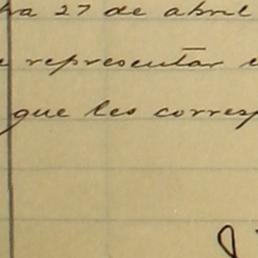 27 de abril
representar
que les corresp